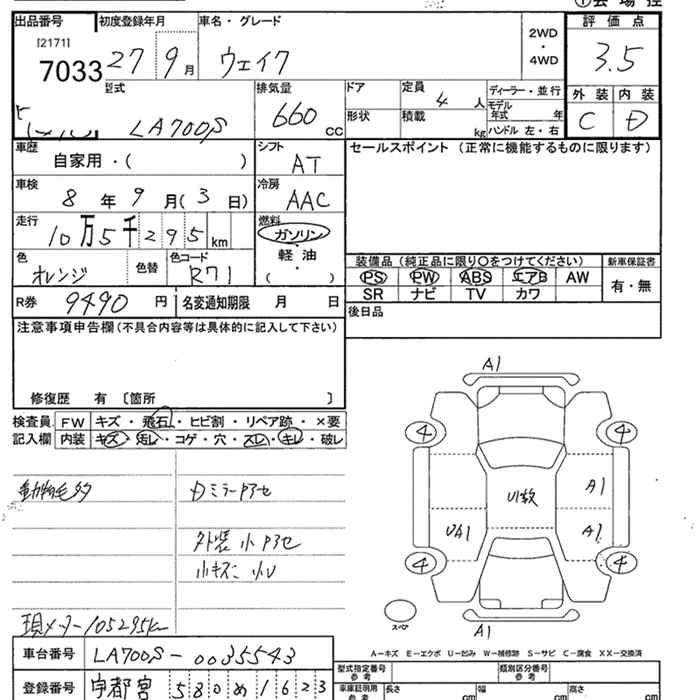 出品番号 初度登録年月 車名・グレード 評価点
[2171]
7033 27 9月 ウェイク 2WD・4WD 3.5
型式 排気量 ドア 定員 4人 ディーラー・並行 外装 内装
LA700S 660cc 形状 積載 kg モデル年式 年 C D
ハンドル 左・右
車歴 シフト セールスポイント (正常に機能するものに限ります)
自家用・( ) AT
車検 冷房
8年9月(3日) AAC
走行 燃料
10万5千295km ガソリン
軽油
( )
色 色替 色コード 装備品 (純正品に限り〇をつけてください) 新車保証書
オレンジ R71 PS PW ABS エアB AW 有・無
SR ナビ TV カワ
R券 9490円 名変通知期限 月 日 後日品
注意事項申告欄(不具合内容等は具体的に記入して下さい)
修復歴 有 〔箇所 〕
検査員 FW キズ・飛石・ヒビ割・リペア跡・×要
記入欄 内装 キズ・汚レ・コゲ・穴・スレ・キレ・破レ
A1
4 4
A1
U1数
UA1 A1
4 4
スペア A1
動物毛多 Dミラーアセ
外装小アセ
小キズ 小U
現メーター105295km
A－キズ E－エクボ U－凹み W－補修跡 S－サビ C－腐食 XX－交換済
車台番号 LA700S-0035543
型式指定番号 参考 類別区分番号 参考
登録番号 宇都宮 580 め 1623
車庫証明用 参考 長さ cm 幅 cm 高さ cm